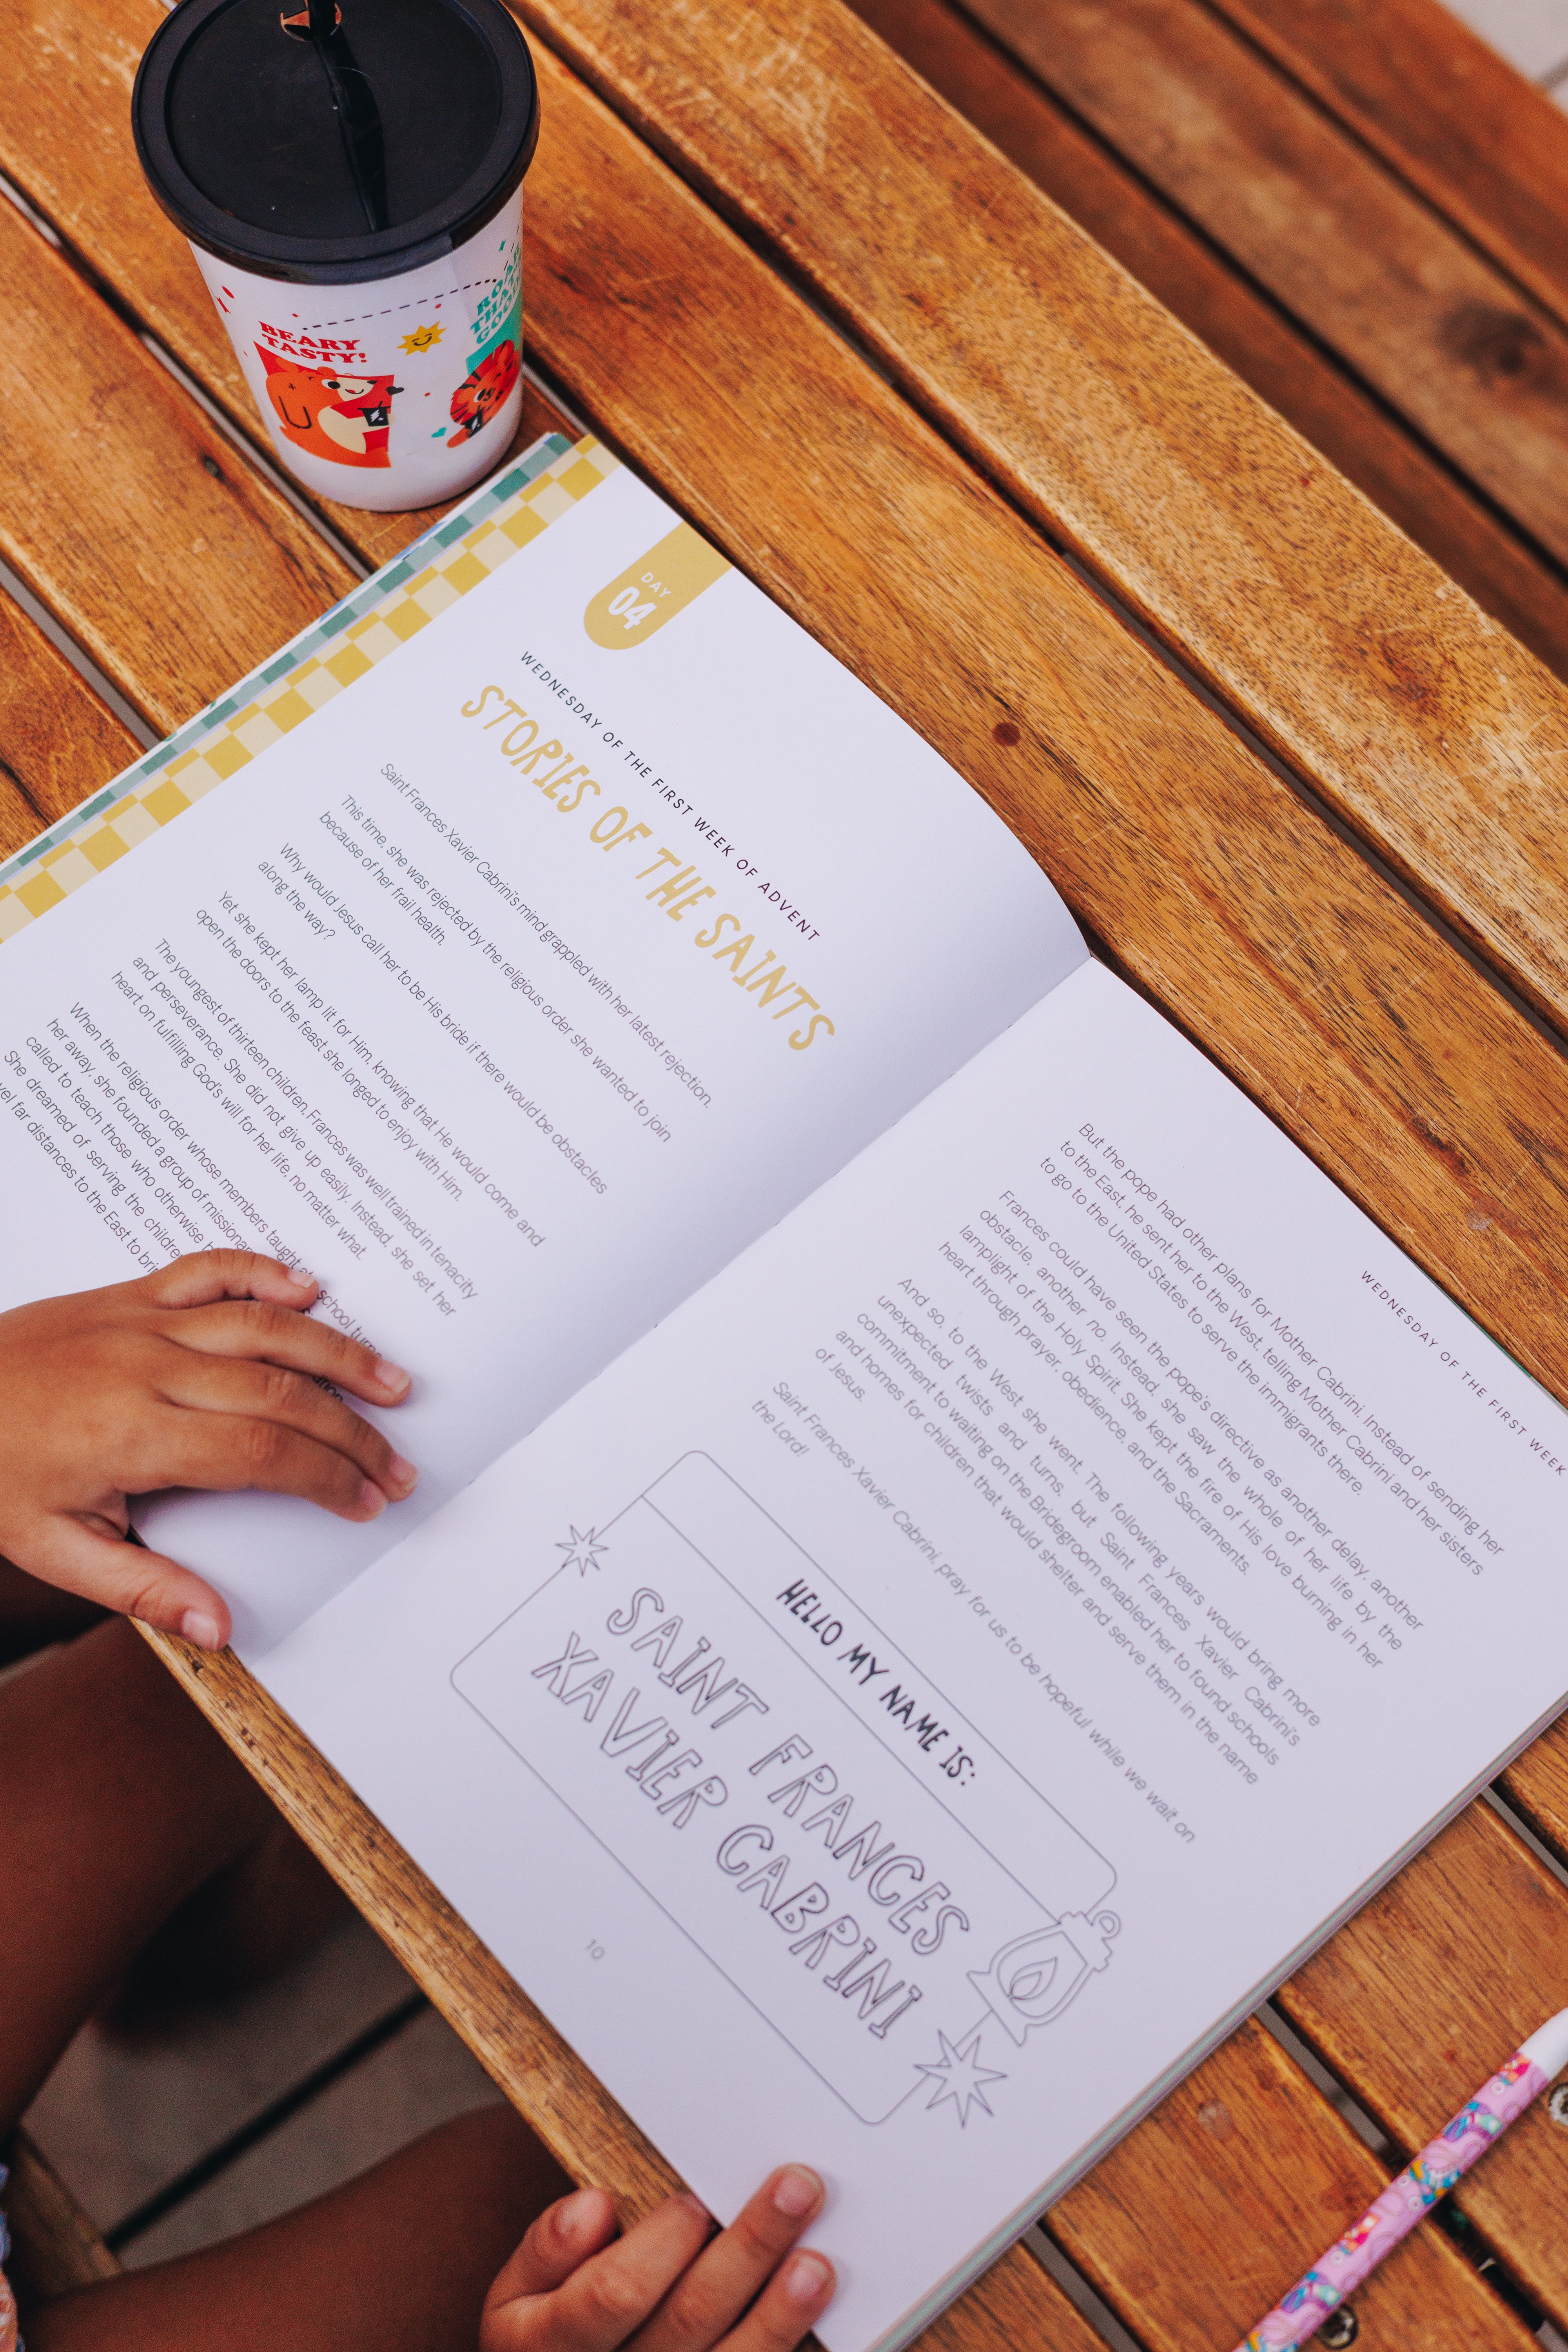 BEARY
TASTY!
ROAR
THAT'S
GOOD
DAY
04
WEDNESDAY OF THE FIRST WEEK OF ADVENT
STORIES OF THE SAINTS
Saint Frances Xavier Cabrini's mind grappled with her latest rejection.
This time, she was rejected by the religious order she wanted to join
because of her frail health.
Why would Jesus call her to be His bride if there would be obstacles
along the way?
Yet she kept her lamp lit for Him, knowing that He would come and
open the doors to the feast she longed to enjoy with Him.
The youngest of thirteen children, Frances was well trained in tenacity
and perseverance. She did not give up easily. Instead, she set her
heart on fulfilling God's will for her life, no matter what.
When the religious order whose members taught at school turned
her away, she founded a group of
called to teach those who otherwise
She dreamed of serving the children
far distances to the East to
WEDNESDAY OF THE FIRST WEEK
But the pope had other plans for Mother Cabrini. Instead of sending her
to the East, he sent her to the West, telling Mother Cabrini and her sisters
to go to the United States to serve the immigrants there.
Frances could have seen the pope's directive as another delay, another
obstacle, another no. Instead, she saw the whole of her life by the
lamplight of the Holy Spirit. She kept the fire of His love burning in her
heart through prayer, obedience, and the Sacraments.
And so, to the West she went. The following years would bring more
unexpected twists and turns, but Saint Frances Xavier Cabrini's
commitment to waiting on the Bridegroom enabled her to found schools
and homes for children that would shelter and serve them in the name
of Jesus.
Saint Frances Xavier Cabrini, pray for us to be hopeful while we wait on
the Lord!
HELLO MY NAME IS:
SAINT FRANCES
XAVIER CABRINI
10